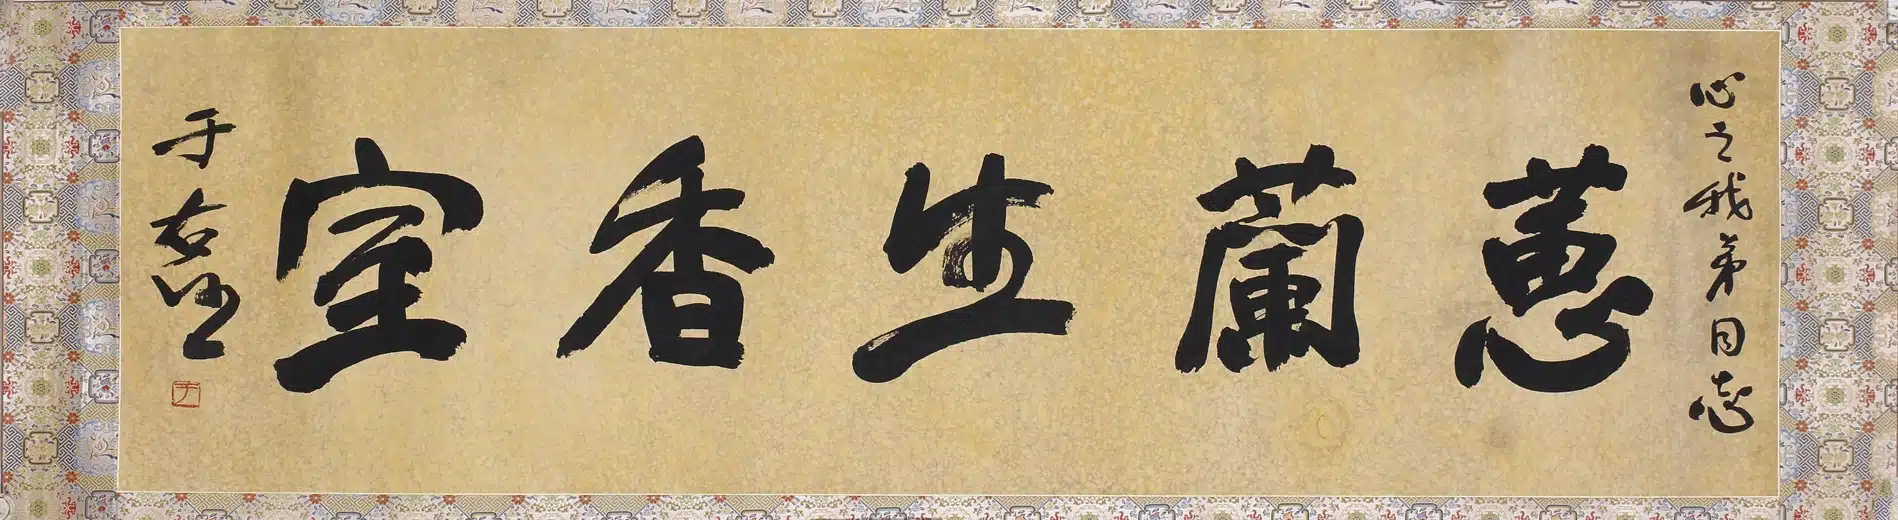 心之我弟同志
蕙蘭生香室
于右任